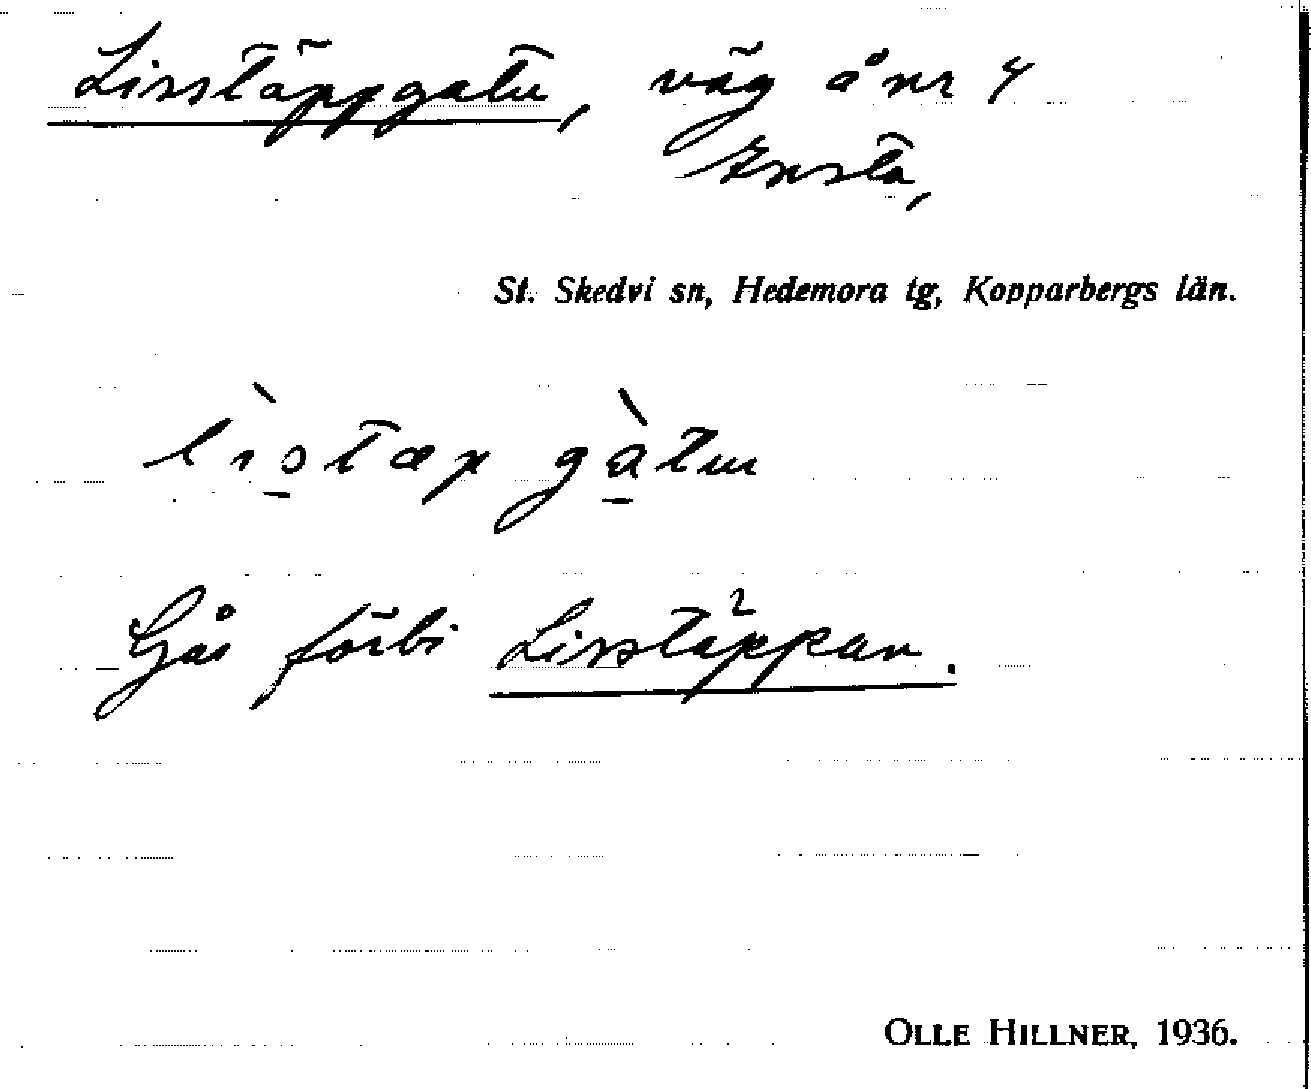 Lisstäppgatu, väg å nr 4
Insta,
St. Skedvi sn, Hedemora tg, Kopparbergs län.
lìstæp gàtu
Går förbi Lisstäppan.
OLLE HILLNER, 1936.